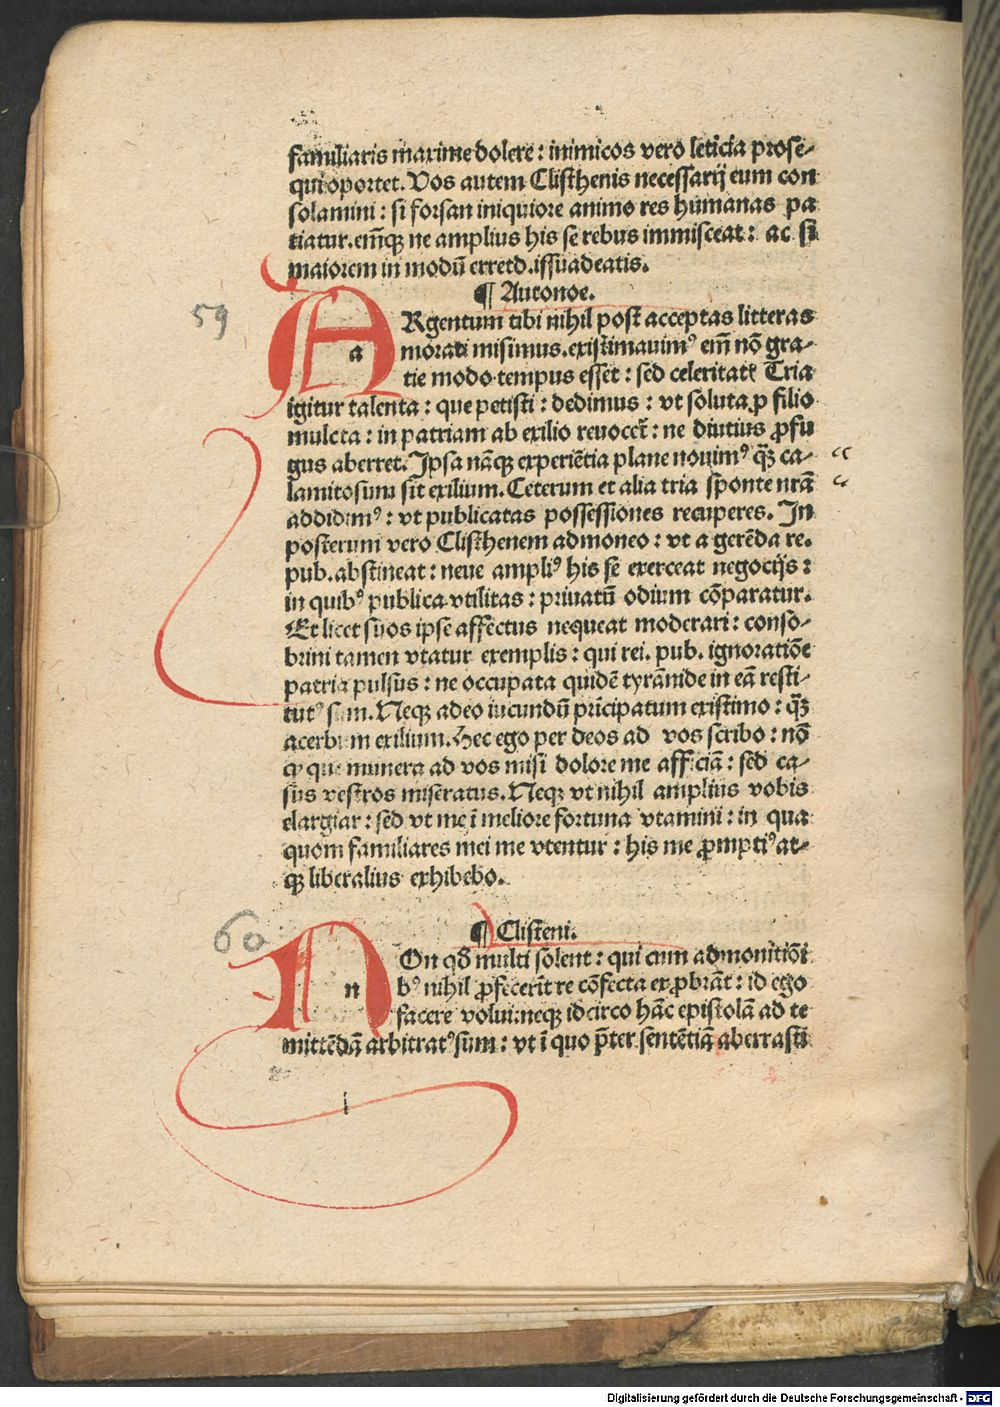 familiaris maxime dolere: inimicos vero leticia prose-
qui oportet. Vos autem Clisthenis necessarij eum con
solamini: si forsan iniquiore animo res humanas pa
tiatur. emq̃ ne amplius his se rebus immisceat: ac si
maiorem in modũ erret
¶ Autonoe.
59
ARgentum tibi nihil post acceptas litteras
a
morati misimus. existimauimꝰ em̃ nõ gra-
tie modo tempus esset: sed celeritatẽ Tria
igitur talenta: que petisti: dedimus: vt soluta ꝓ filio
mulcta: in patriam ab exilio reuocet̃: ne diutius ꝓfu
gus aberret. Ipsa nãqꝫ experiẽtia plane nouimꝰ q̃ꝫ ca-
lamitosum sit exilium. Ceterum et alia tria sponte nr̃a
addidimꝰ: vt publicatas possessiones recuperes. In
posterum vero Clisthenem admoneo: vt a gerẽda re.
pub. abstineat: neue ampliꝰ his se exerceat negocijs:
in quibꝰ publica vtilitas: priuatũ odium cõparatur.
Et licet suos ipse affectus nequeat moderari: conso-
brini tamen vtatur exemplis: qui rei. pub. ignoratiõe
patria pulsus: ne occupata quidẽ tyrãnide in eã resti-
tutꝰ sum. Neqꝫ adeo iucundũ prĩcipatum existimo: q̃ꝫ
acerbum exilium. Hec ego per deos ad vos scribo: nõ
que munera ad vos misi dolore me afficiã: sed ca-
sus vestros miseratus. Neqꝫ vt nihil amplius vobis
elargiar: sed vt me ĩ meliore fortuna vtamini: in qua
quom familiares mei me vtentur: his me ꝓmptiꝰ at-
qꝫ liberalius exhibebo.
¶ Clisteni.
60
NOn qđ multi solent: qui cum admonitiõi
n
bꝰ nihil ꝓfecerĩt re cõfecta exꝓbrãt: id ego
facere volui: neqꝫ idcirco hãc epistolã ad te
mittẽdã arbitratꝰ sum: vt ĩ quo p̃ter sentẽtiã aberrasti
i
Digitalisierung gefördert durch die Deutsche Forschungsgemeinschaft - DFG